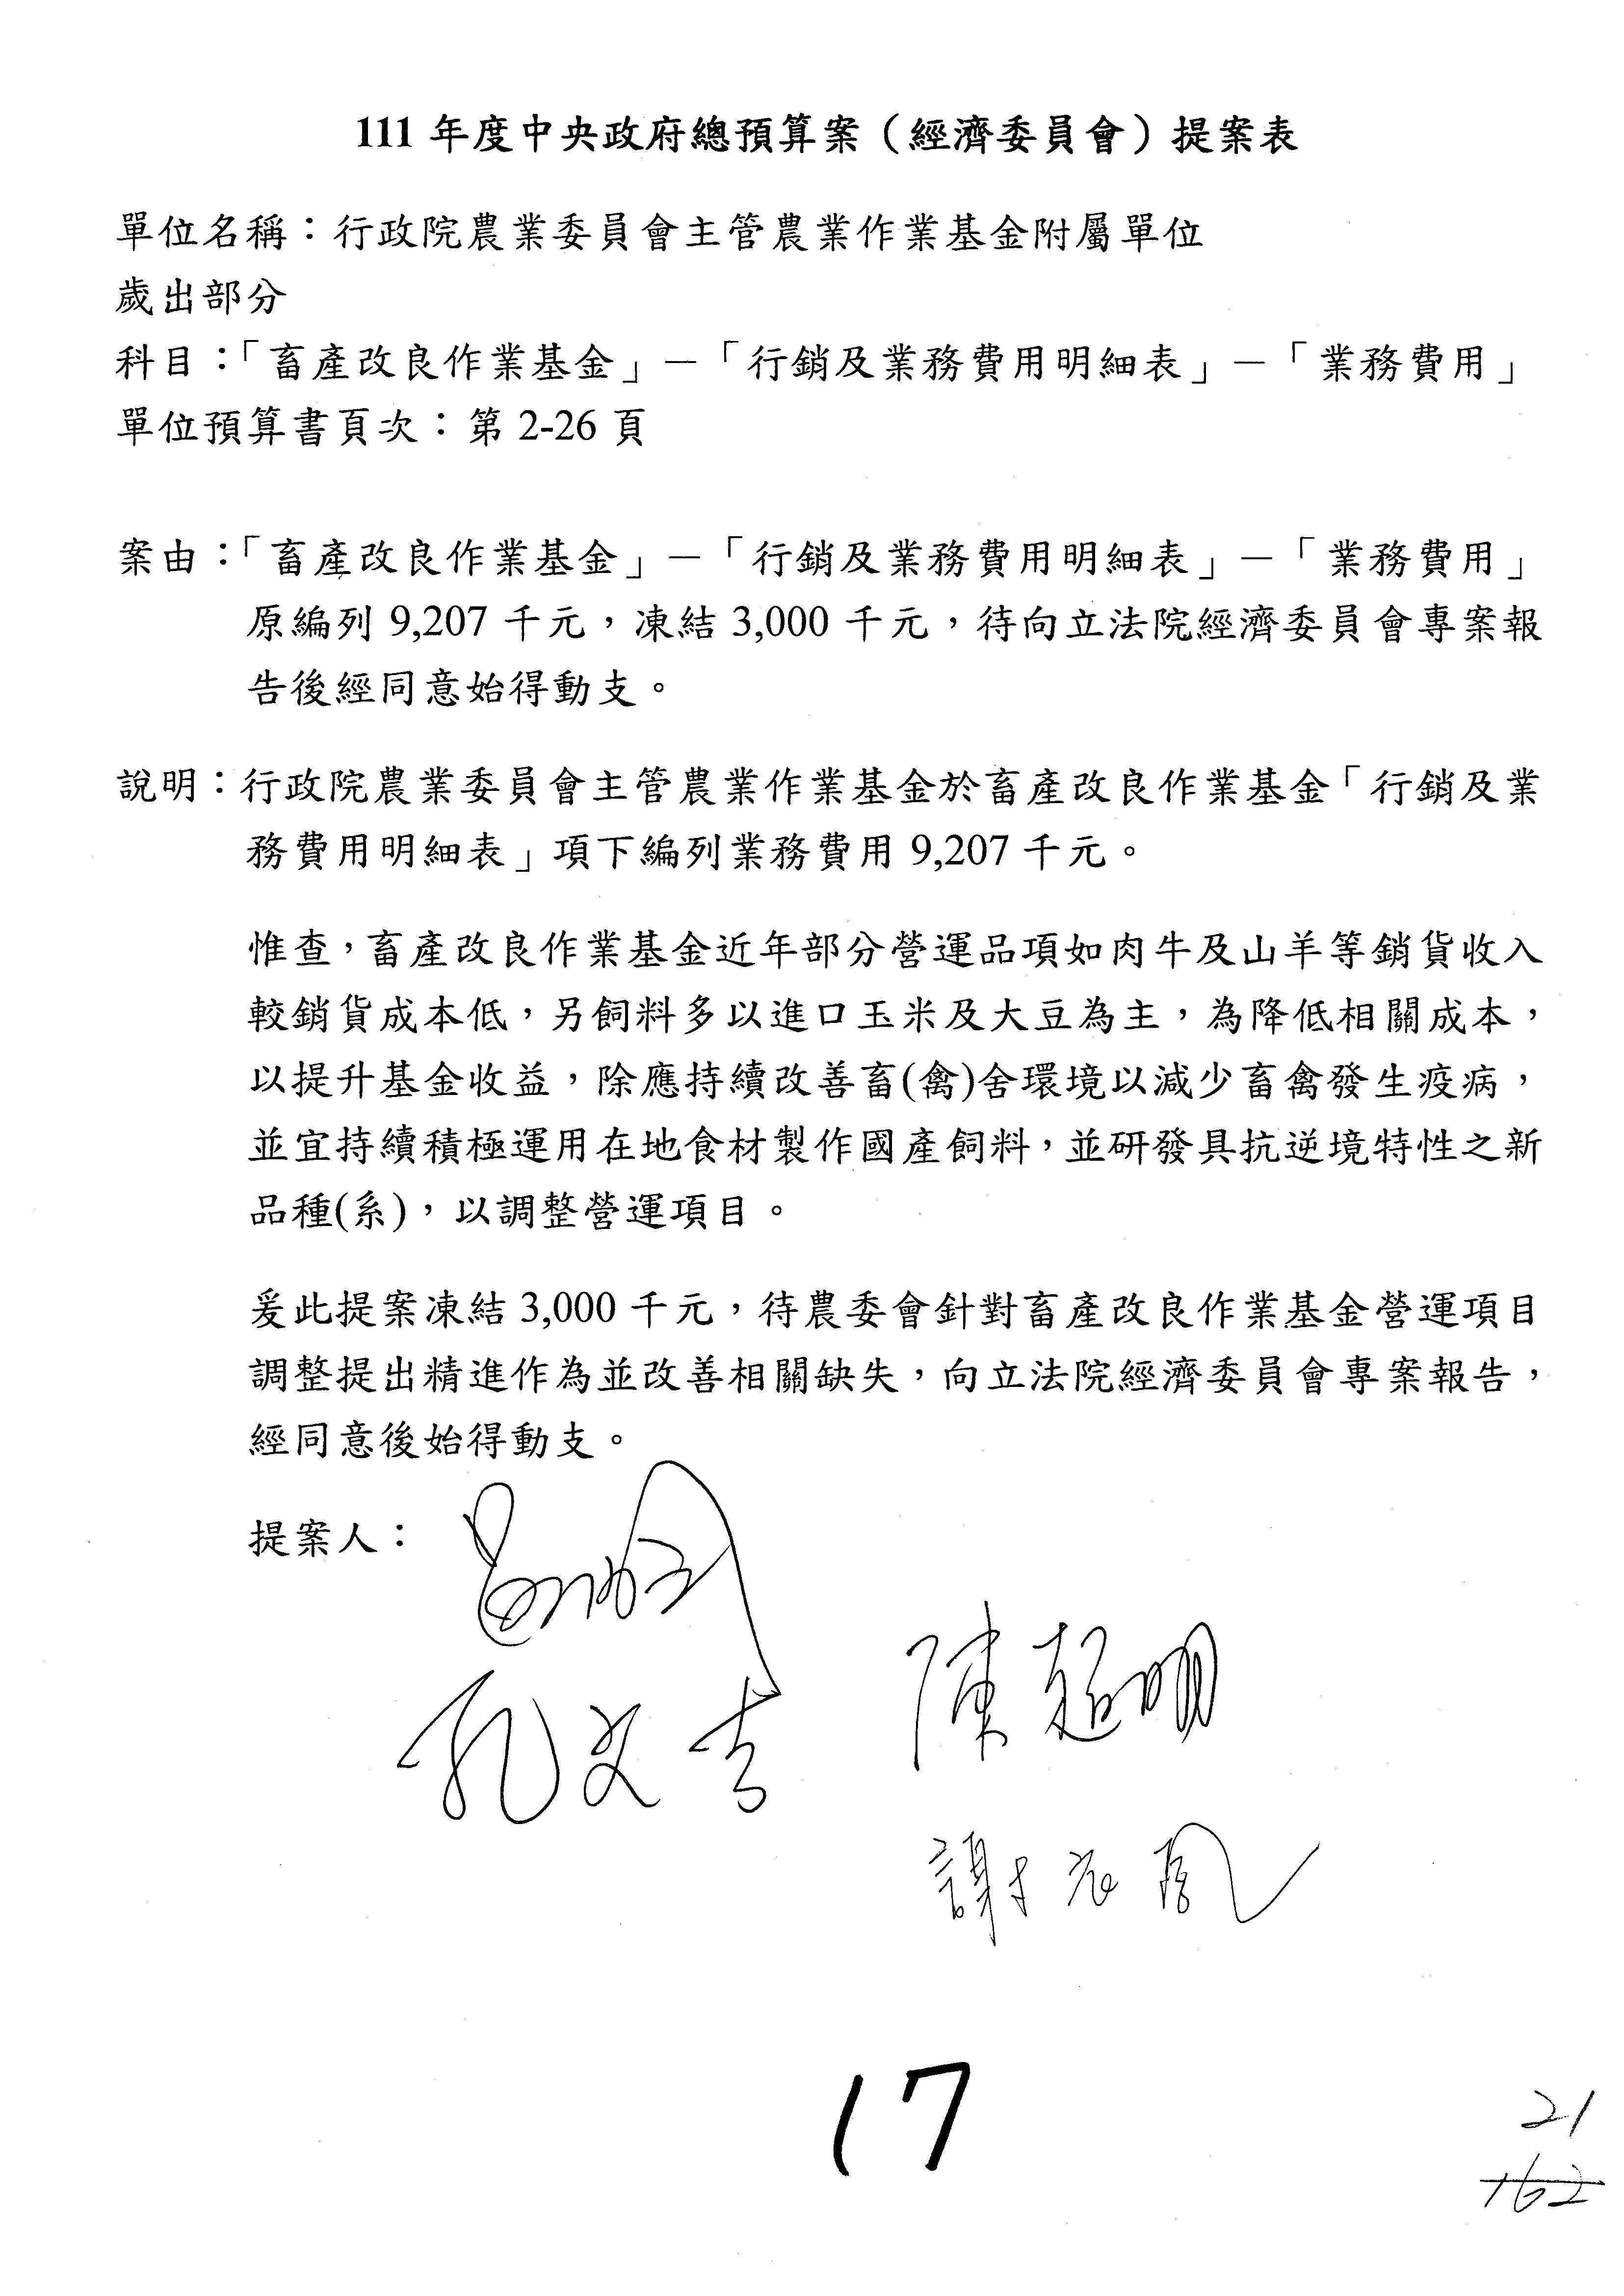 111 年度中央政府總預算案（經濟委員會）提案表
單位名稱：行政院農業委員會主管農業作業基金附屬單位
歲出部分
科目：「畜產改良作業基金」－「行銷及業務費用明細表」－「業務費用」
單位預算書頁次：第 2-26 頁
案由：「畜產改良作業基金」－「行銷及業務費用明細表」－「業務費用」
原編列 9,207 千元，凍結 3,000 千元，待向立法院經濟委員會專案報
告後經同意始得動支。
說明：行政院農業委員會主管農業作業基金於畜產改良作業基金「行銷及業
務費用明細表」項下編列業務費用 9,207 千元。
惟查，畜產改良作業基金近年部分營運品項如肉牛及山羊等銷貨收入
較銷貨成本低，另飼料多以進口玉米及大豆為主，為降低相關成本，
以提升基金收益，除應持續改善畜(禽)舍環境以減少畜禽發生疫病，
並宜持續積極運用在地食材製作國產飼料，並研發具抗逆境特性之新
品種(系)，以調整營運項目。
爰此提案凍結 3,000 千元，待農委會針對畜產改良作業基金營運項目
調整提出精進作為並改善相關缺失，向立法院經濟委員會專案報告，
經同意後始得動支。
提案人：
陳超明
孔文吉
謝衣鳳
17
21
162